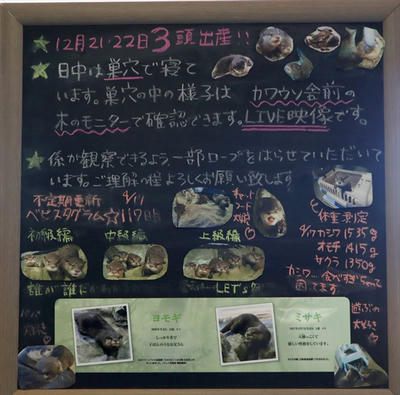 ★12月21・22日3頭出産!!
★日中は巣穴で寝て
います。巣穴の中の様子は カワウソ舎前の
木のモニターで確認できます。LIVE映像です。
★係が観察できるよう、一部ロープをはらせていただいて
います。ご理解の程よろしくお願い致します
不定期更新 4/11
ベビスタグラム☆117日目
初級編 中級編 上級編
誰が誰だか
LET's
キャット
フード
大好き
☆体重測定
4/17カワシソ1535g
モチ1415g
サクラ1350g
困ってます
遊ぶの
大好き
ヨモギ
ミサキ